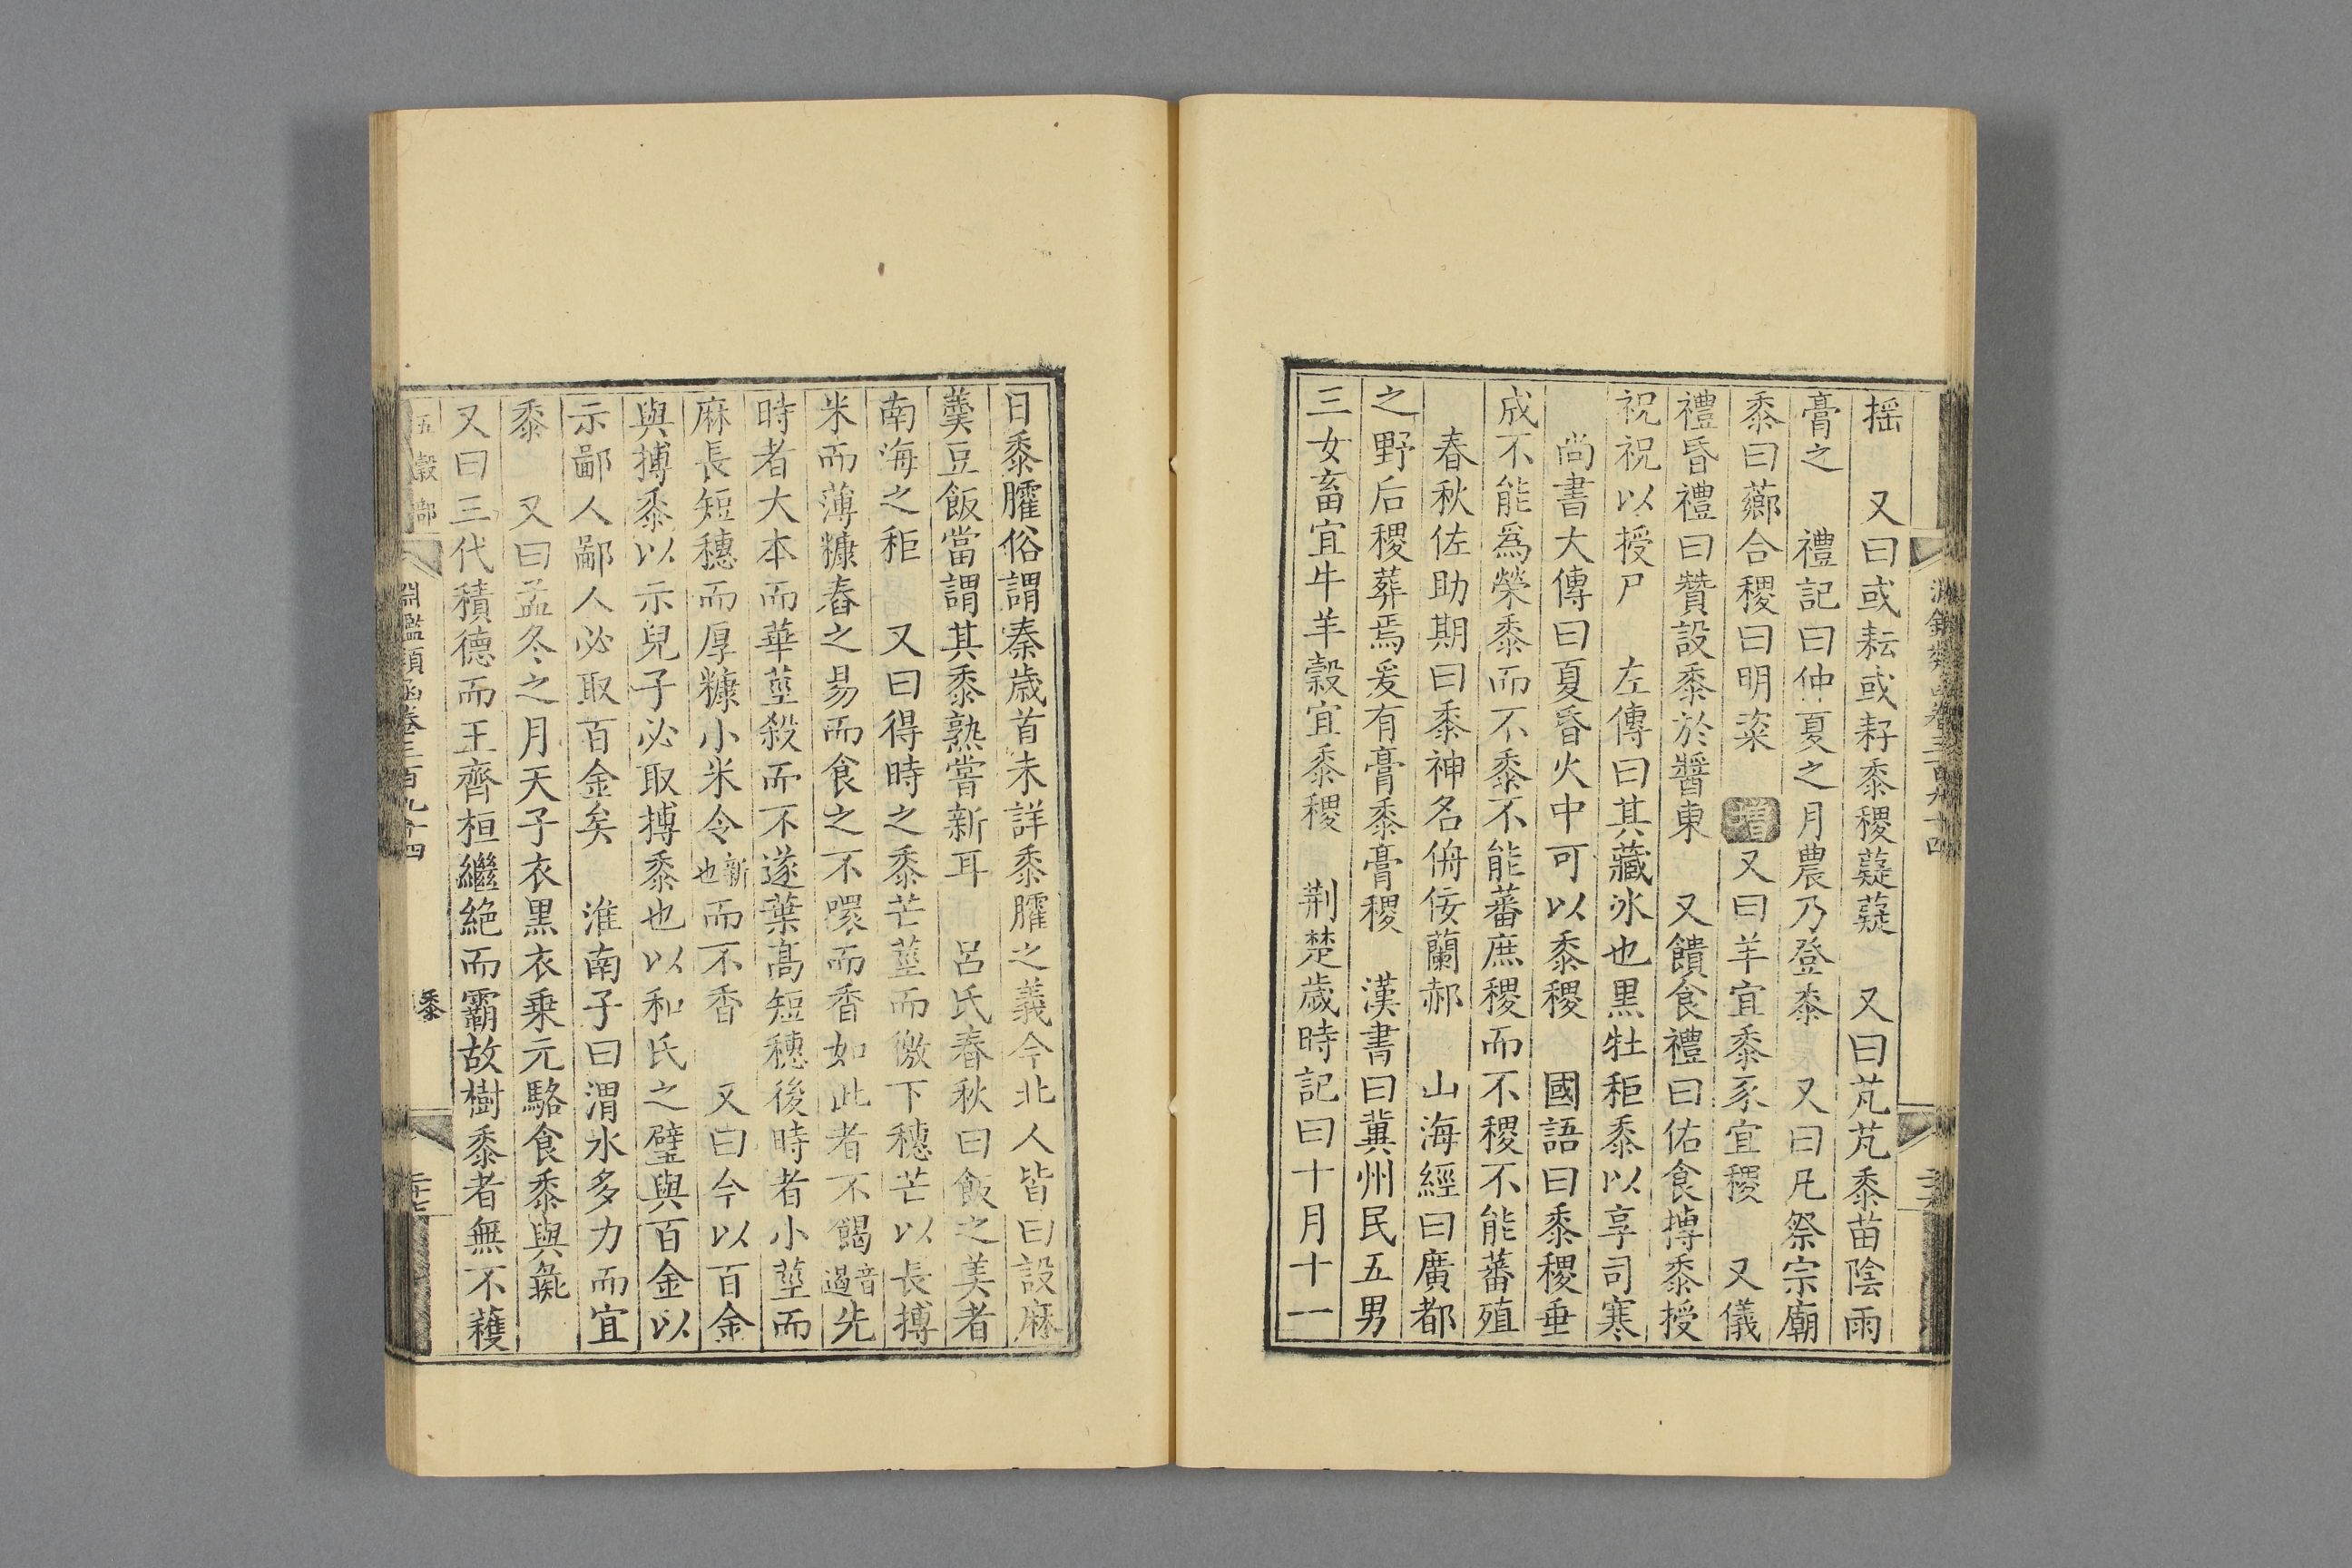 搖　又曰或耘或耔黍稷薿薿　又曰芃芃黍苗陰雨
膏之　禮記曰仲夏之月農乃登黍　又曰凡祭宗廟
黍曰薌合稷曰明粢　增又曰羊宜黍豕宜稷　又儀
禮昏禮曰贊設黍於醬東　又饋食禮曰佑食摶黍授
祝祝以授尸　左傳曰其藏冰也黑牡秬黍以享司寒
尚書大傳曰夏昏火中可以黍稷　國語曰黍稷垂
成不能爲榮黍而不黍不能蕃庶稷而不稷不能蕃殖
春秋佐助期曰黍神名俯佞蘭郝　山海經曰廣都
之野后稷葬焉爰有膏黍膏稷　漢書曰冀州民五男
三女畜宜牛羊穀宜黍稷　荆楚歲時記曰十月十一
日黍臛俗謂秦歲首未詳黍臛之義今北人皆曰設麻
羹豆飯當謂其黍熟嘗新耳　呂氏春秋曰飯之美者
南海之秬　又曰得時之黍芒莖而徼下穗芒以長搏
米而薄糠舂之易而食之不噮而香如此者不餲音遏先
時者大本而華莖殺而不遂葉高短穗後時者小莖而
麻長短穗而厚糠小米令新也而不香　又曰今以百金
與搏黍以示兒子必取搏黍也以和氏之璧與百金以
示鄙人鄙人必取百金矣　淮南子曰渭水多力而宜
黍　又曰孟冬之月天子衣黑衣乘元駱食黍與彘
又曰三代積德而王齊桓繼絕而霸故樹黍者無不穫
五穀部　淵鑑類函卷三百九十四　黍